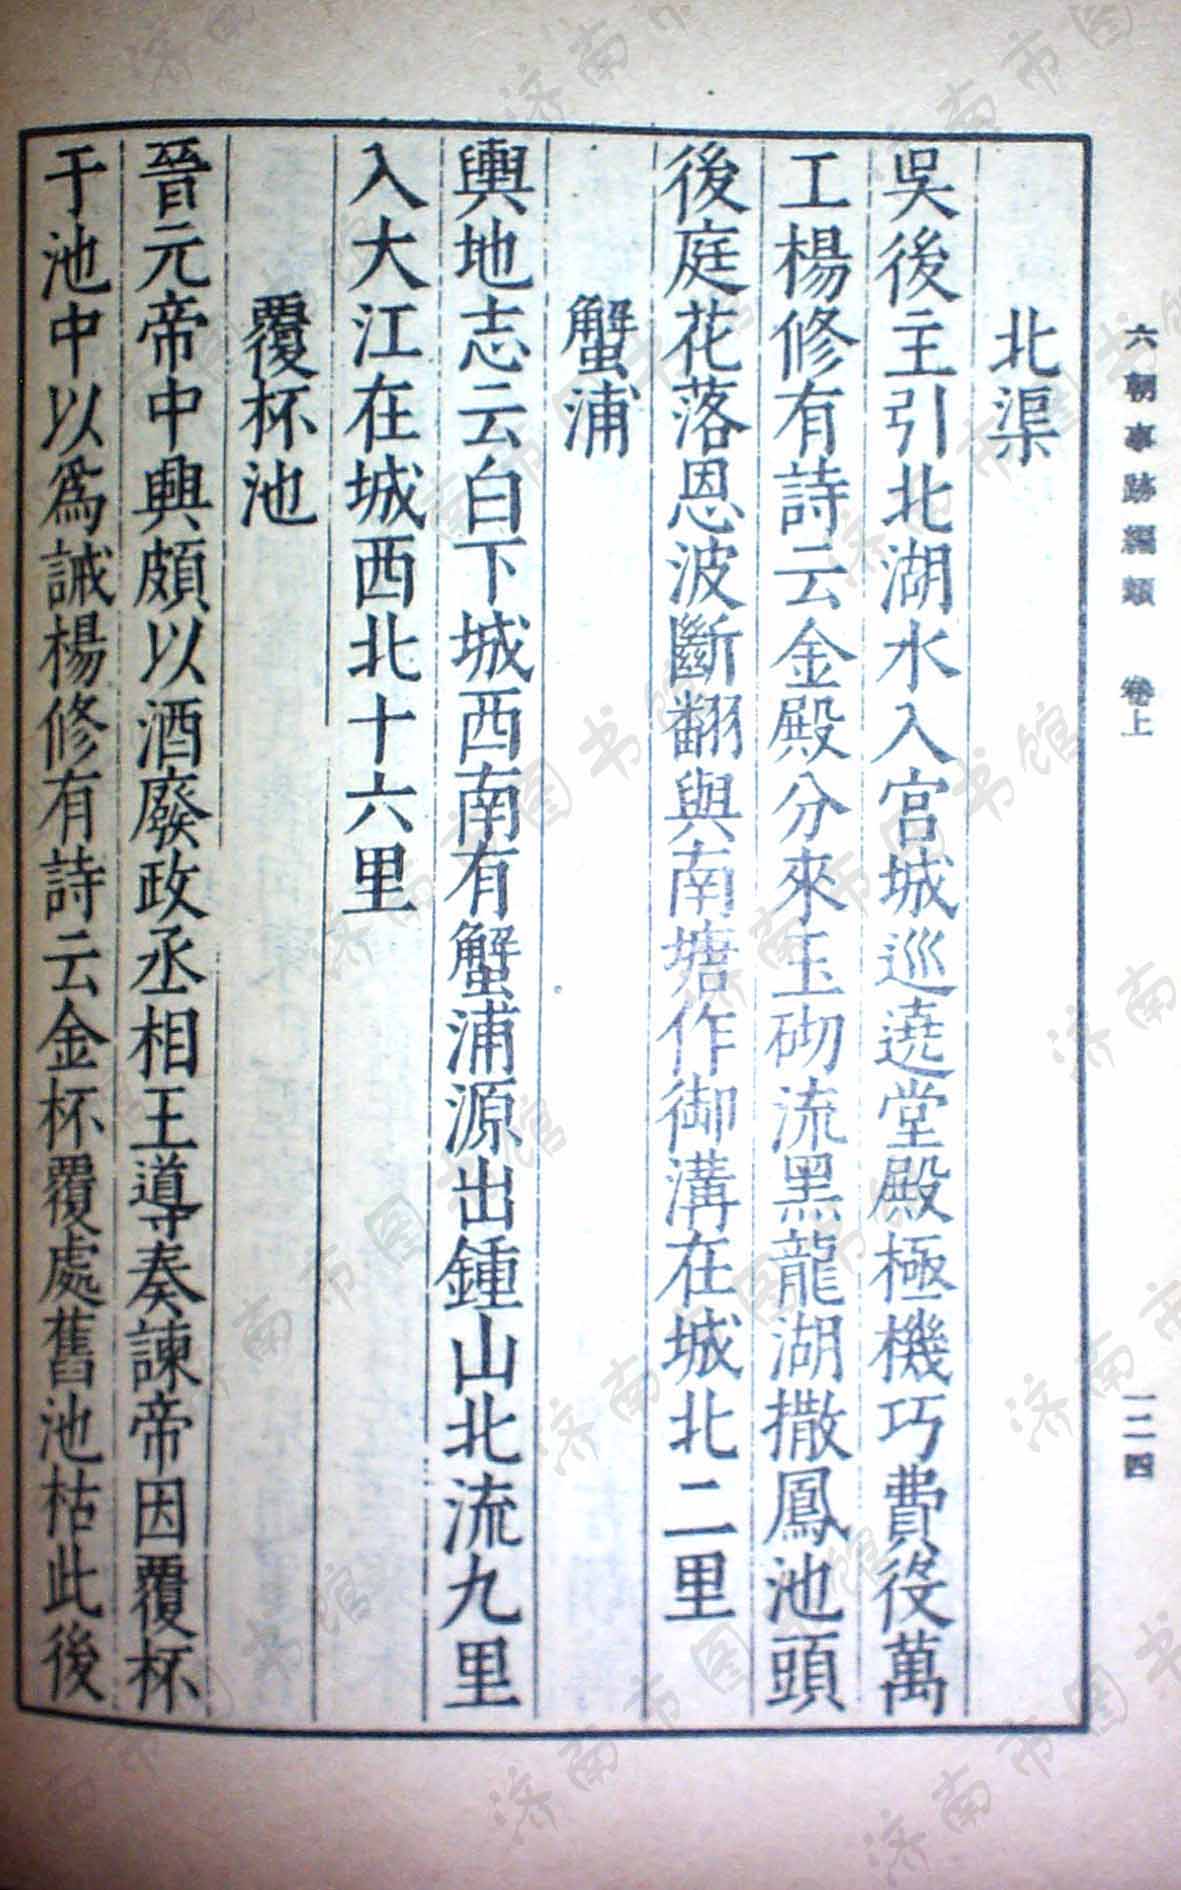 六朝事跡編類 卷上 一二四
北渠
吳後主引北湖水入宮城巡遶堂殿極機巧費役萬
工楊修有詩云金殿分來玉砌流黑龍湖撒鳳池頭
後庭花落恩波斷翻與南塘作御溝在城北二里
蟹浦
輿地志云白下城西南有蟹浦源出鍾山北流九里
入大江在城西北十六里
覆杯池
晉元帝中興頗以酒廢政丞相王導奏諫帝因覆杯
于池中以爲誡楊修有詩云金杯覆處舊池枯此後
济南市图书馆